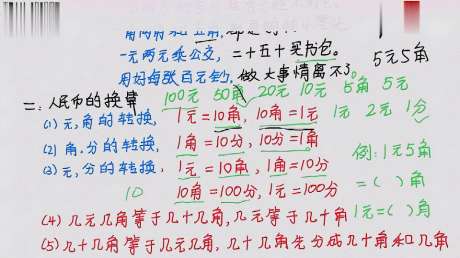 一元两元乘公交,二十五十买书包。
用好每张百元钞,做大事情离不了。
5元5角
二:人民币的换算
100元 50角 20元 10元 5角 5元
(1)元,角的转换, 1元=10角, 10角=1元 1元 2元 1分
(2)角.分的转换, 1角=10分, 10分=1角
例:1元5角
(3)元,分的转换, 1元=10角, 1角=10分
=( )角
10 10角=100分, 1元=100分
1元=( )角
(4)几元几角等于几十几角,几元等于几十角
(5)几十几角等于几元几角,几十几角先分成几十角和几角